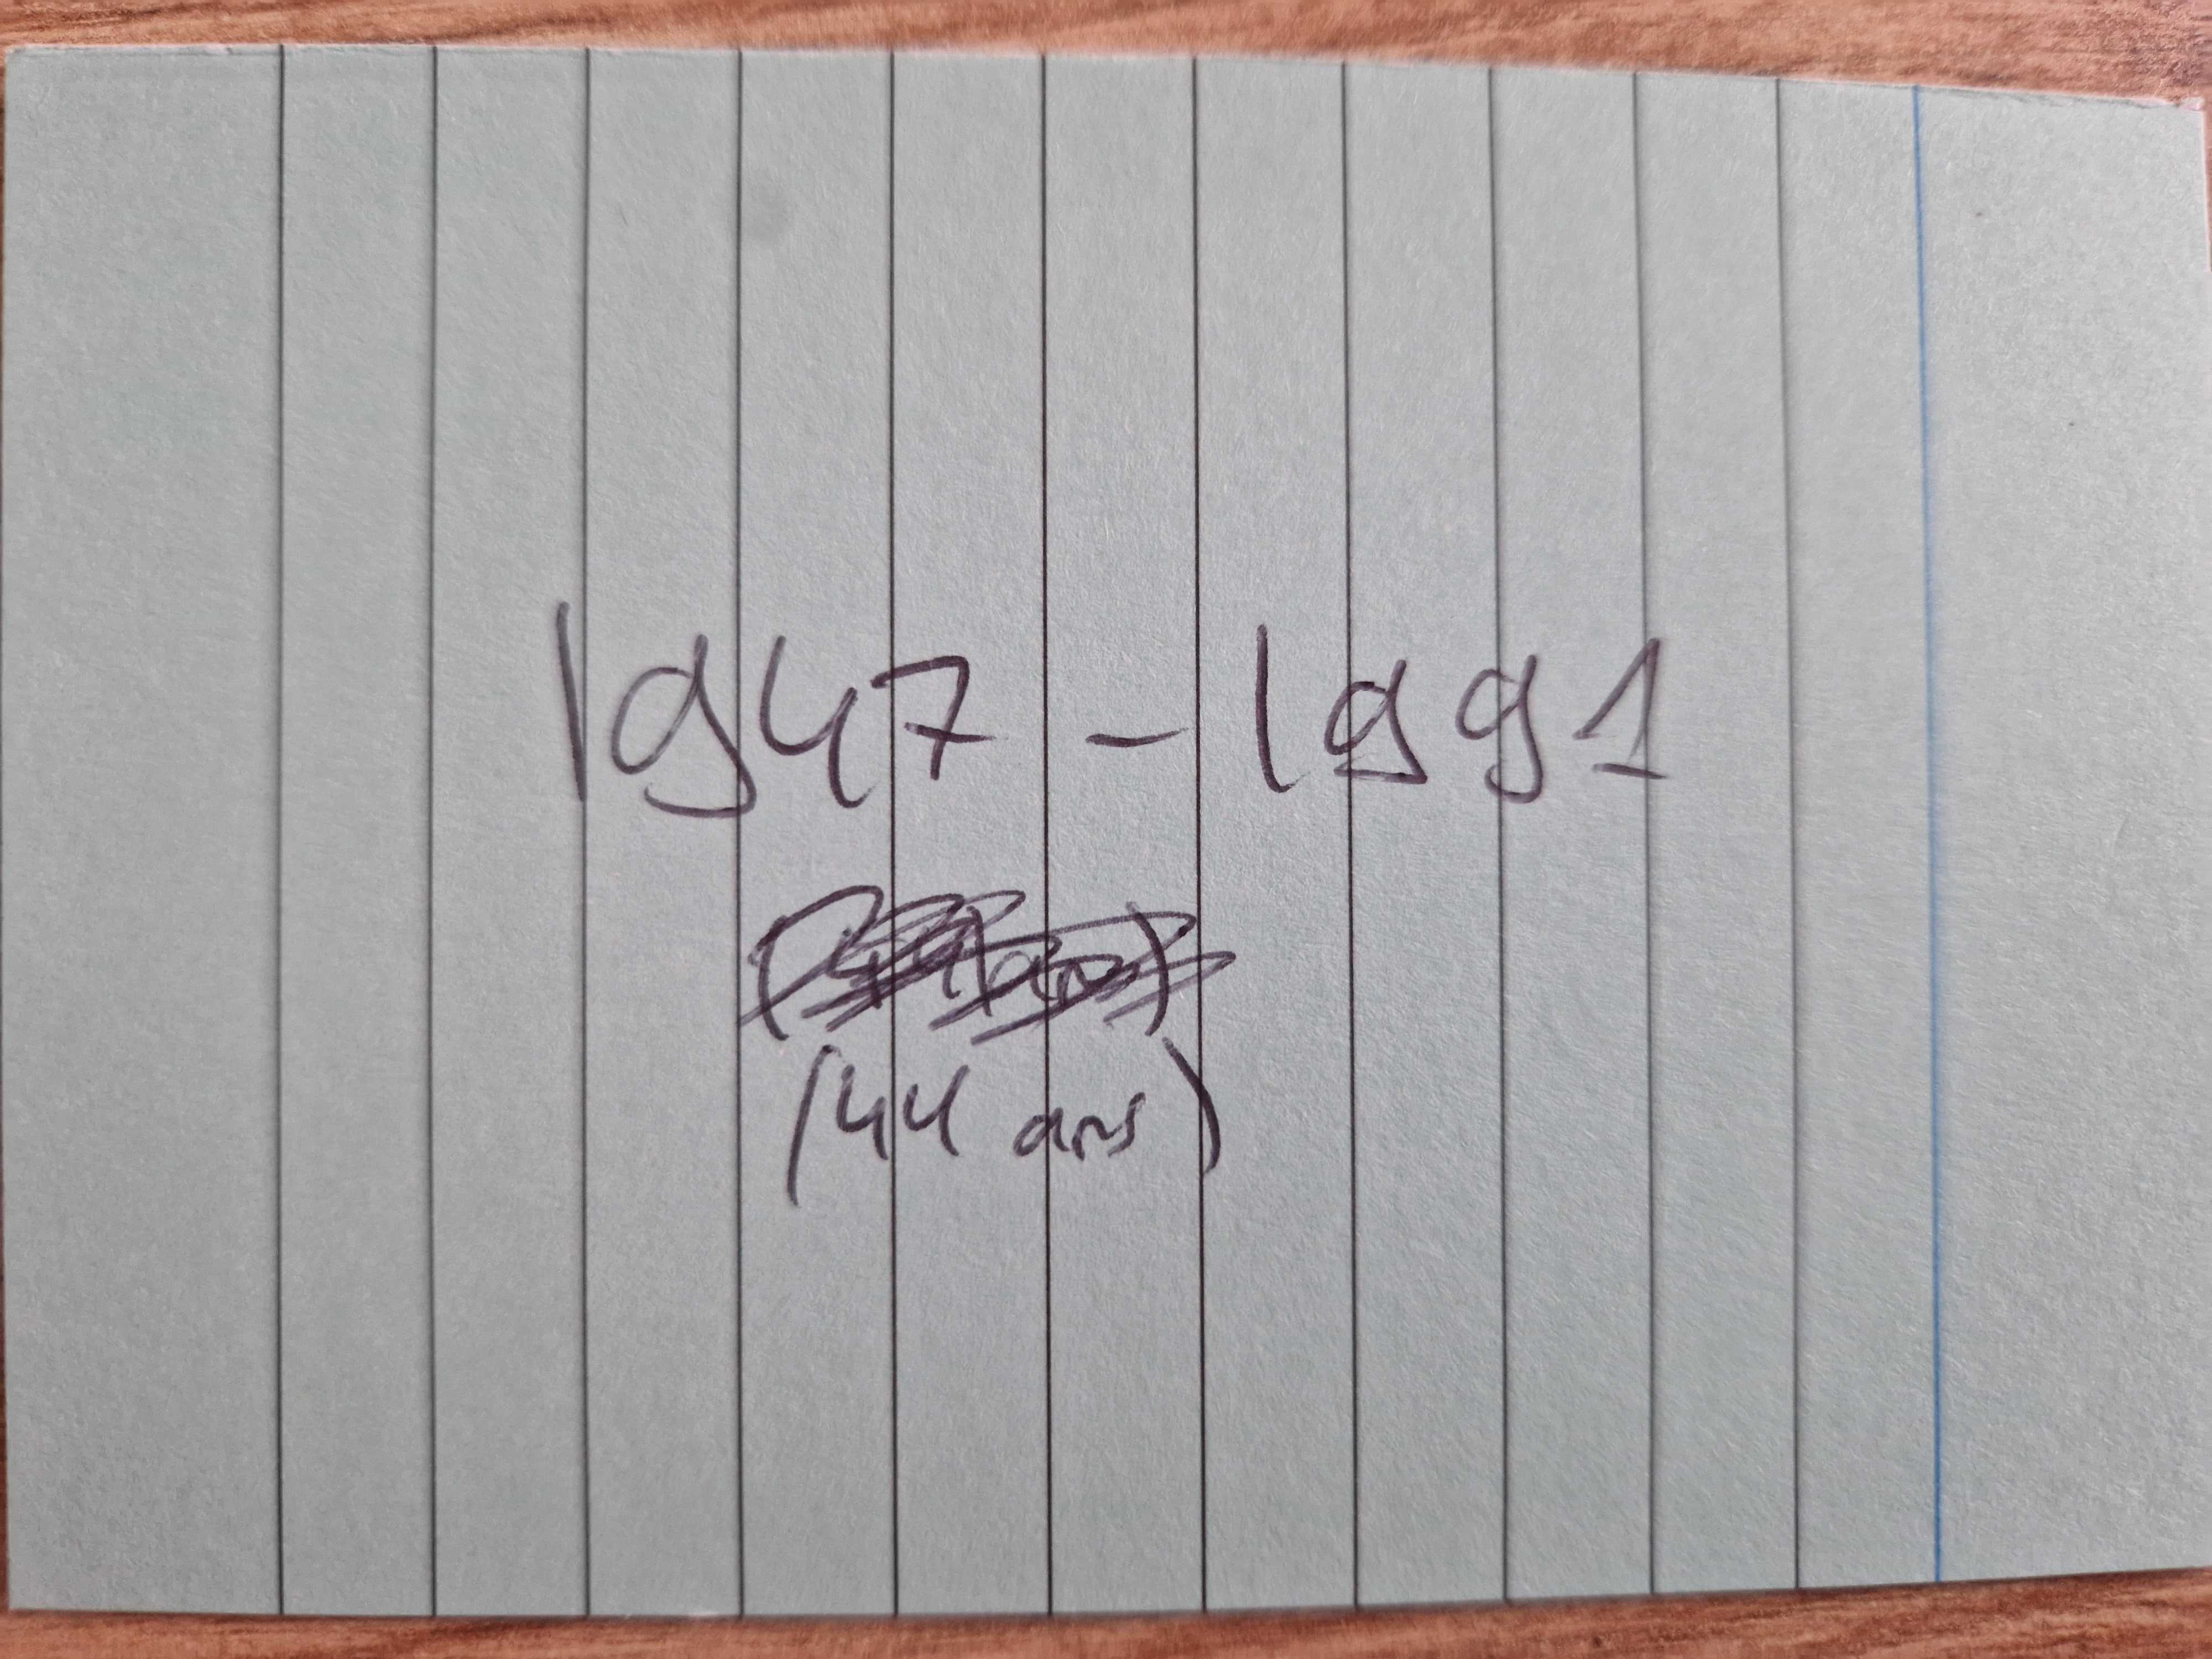 1947 - 1991
(44 ans)